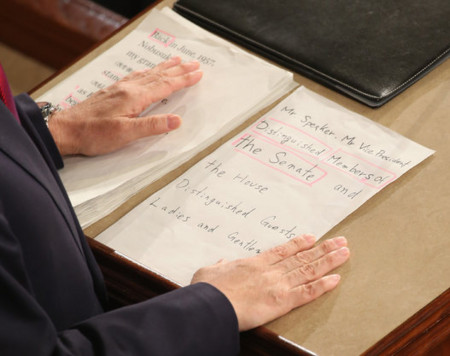 Back in June, 1957,
Nobusuke
my grand
standing
Mr Speaker, Mr Vice President
Distinguished Members of
the Senate and
the House
Distinguished Guests
Ladies and Gentle